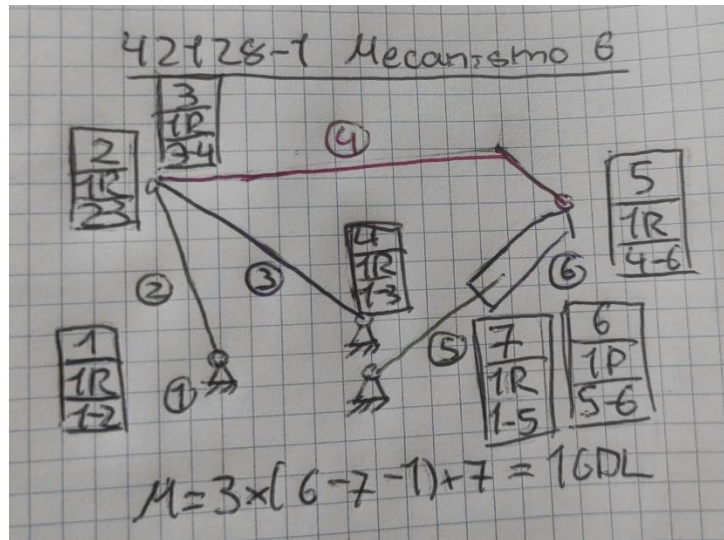 42128-1 Mecanismo 6
3
1R
3-4
2
1R
23
4
5
1R
4-6
4
1R
1-3
2
3
6
1
1R
1-2
1
5
7
1R
1-5
6
1P
5-6
M=3×(6-7-1)+7=1GDL